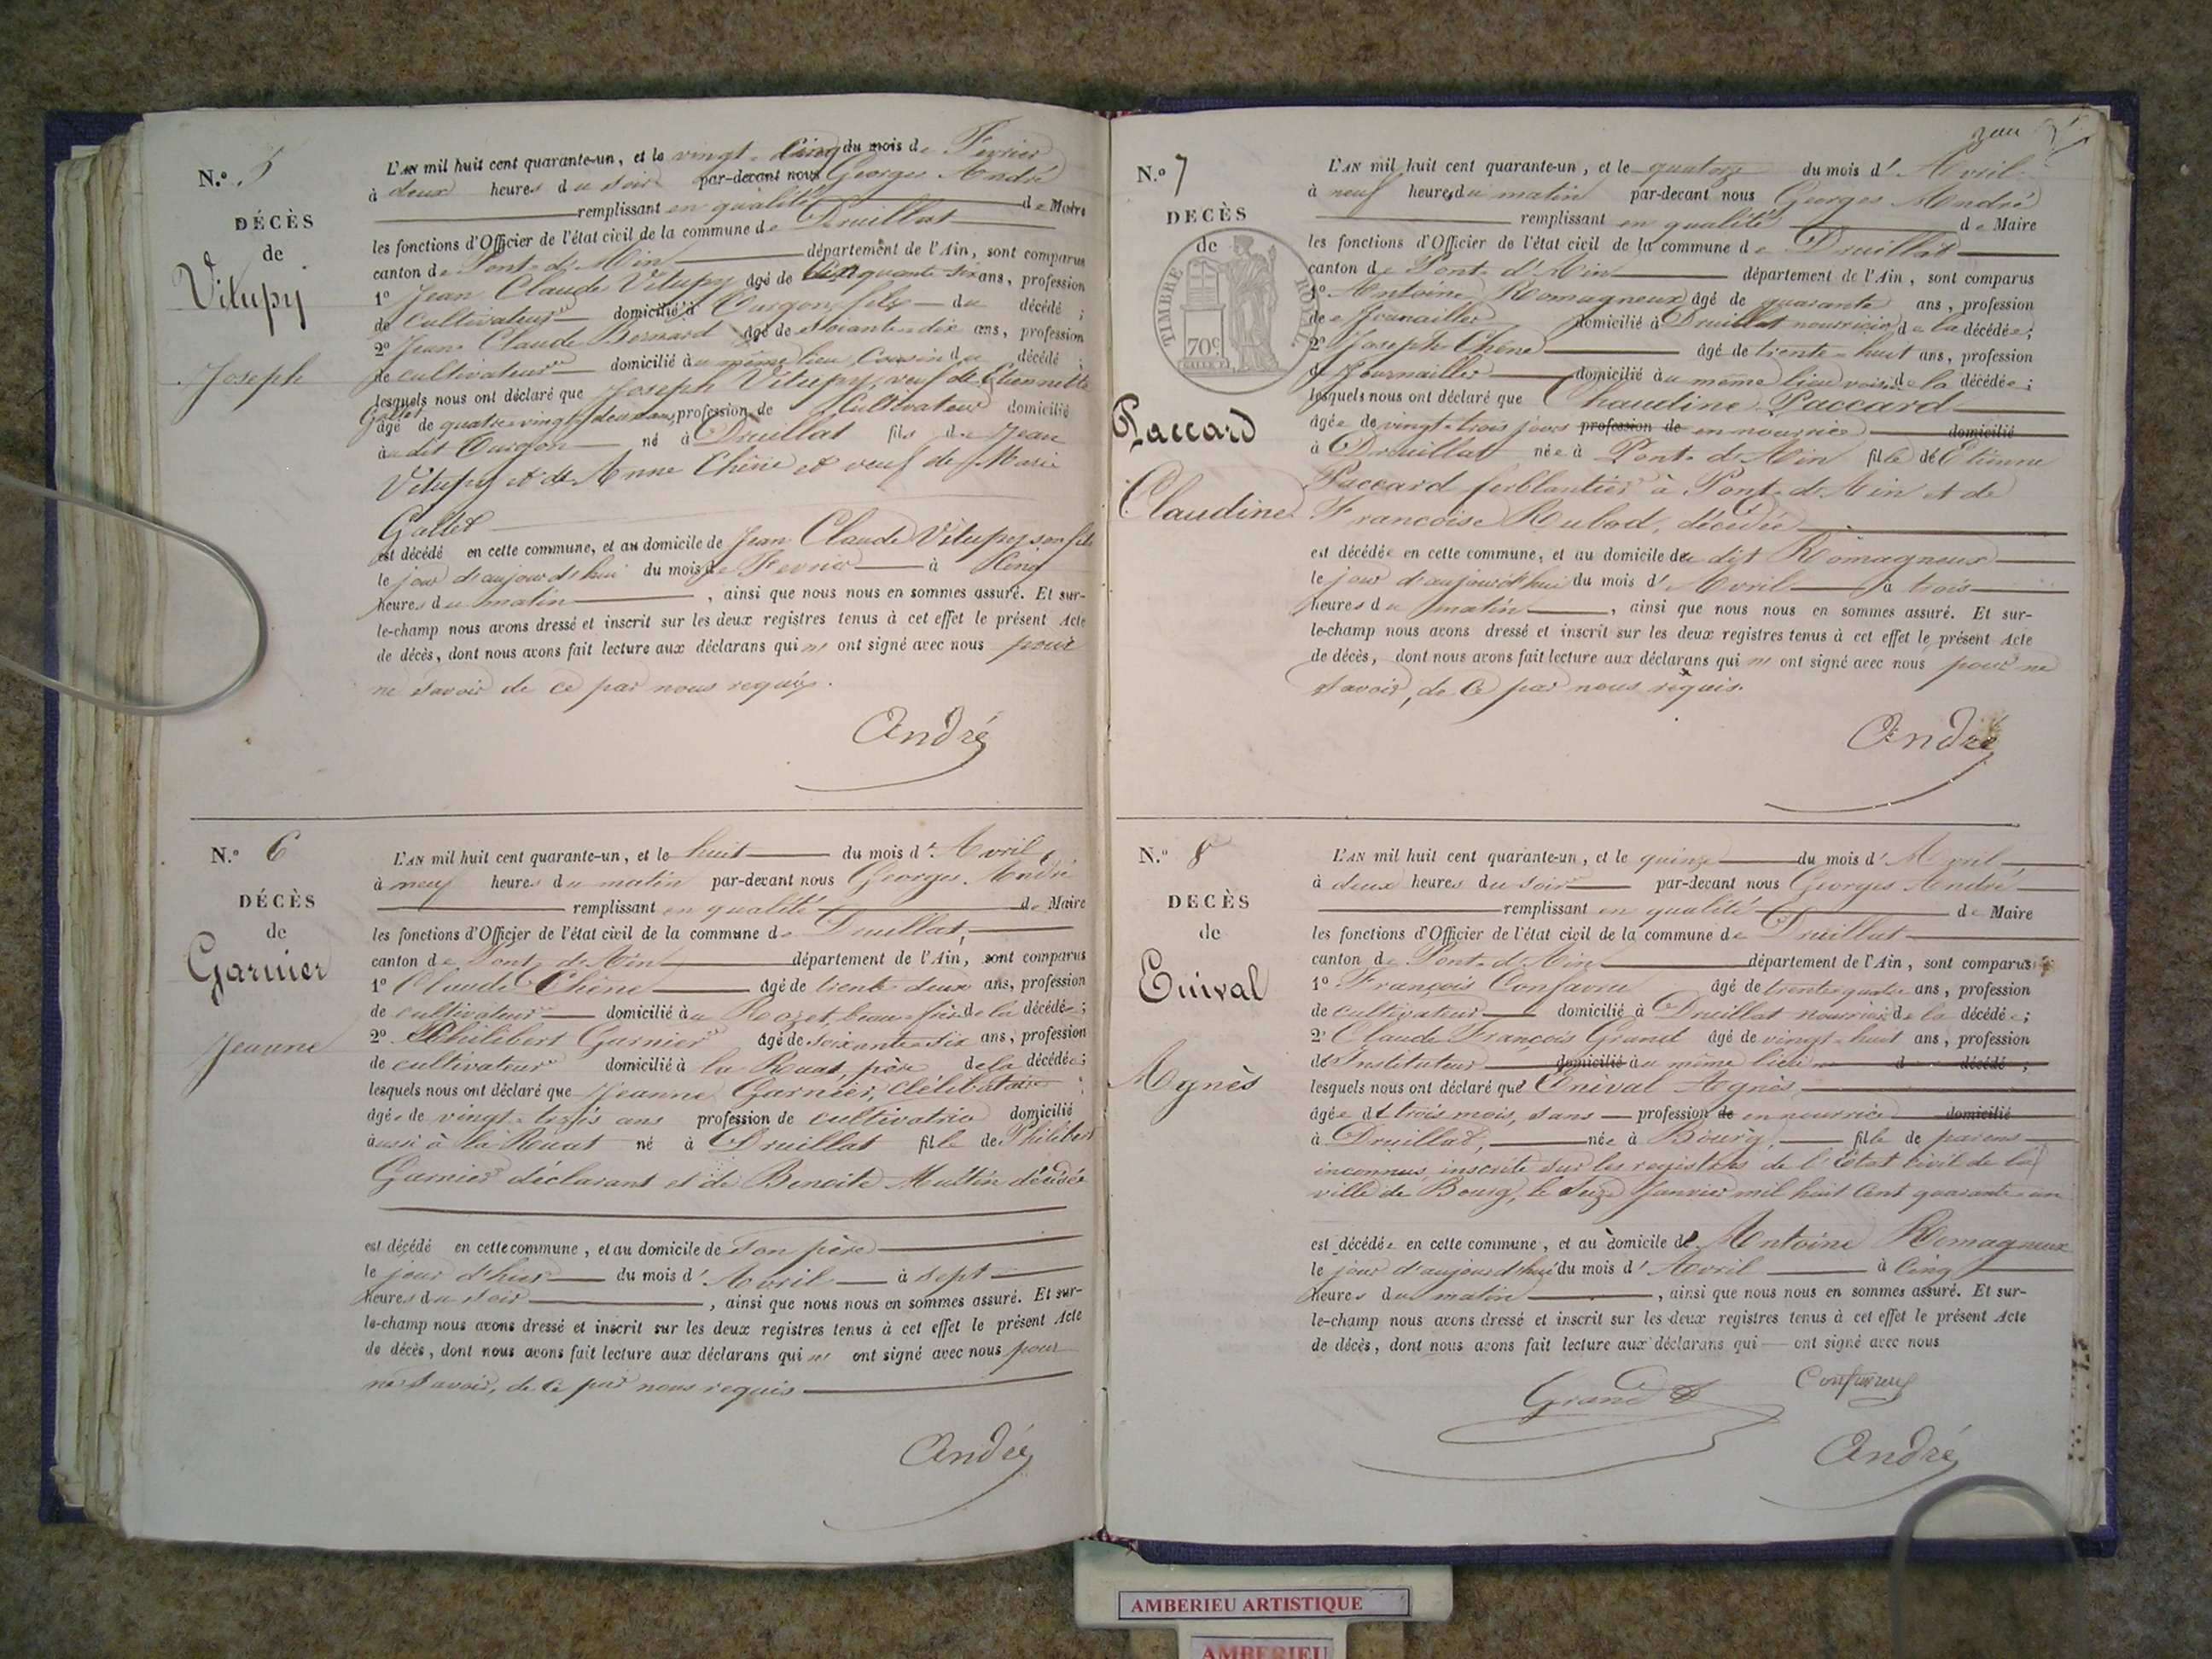 N.º 5
DÉCÈS
de
Vilupy
Joseph
L'AN mil huit cent quarante-un, et le vingt-cinq du mois de Fevrier
à deux heures du soir par-devant nous Georges André
remplissant en qualité de Maire
les fonctions d'Officier de l'état civil de la commune de Druillat
canton de Pont-d'Ain département de l'Ain, sont comparus
1º Jean Claude Vilupy âgé de cinquante six ans, profession
de cultivateur domicilié à Ourgon fils du décédé ;
2º Jean Claude Bernard âgé de soixante-dix ans, profession
de cultivateur domicilié au même lieu Cousin du décédé ;
lesquels nous ont déclaré que Joseph Vilupy, veuf de Étiennette
Gallet
âgé de quatre vingt deux ans, profession de Cultivateur domicilié
au dit Ourgon né à Druillat fils de Jean
Vilupy et de Anne Chêne et veuf de Marie
Gallet
est décédé en cette commune, et au domicile de Jean Claude Vilupy son fils
le jour d'aujourd'hui du mois de Fevrier à cinq
heures du matin, ainsi que nous nous en sommes assuré. Et sur-
le-champ nous avons dressé et inscrit sur les deux registres tenus à cet effet le présent Acte
de décès, dont nous avons fait lecture aux déclarans qui ne ont signé avec nous pour
ne savoir de ce par nous requis.
André
N.º 6
DÉCÈS
de
Garnier
Jeanne
L'AN mil huit cent quarante-un, et le huit du mois d'Avril
à neuf heures du matin par-devant nous Georges André
remplissant en qualité de Maire
les fonctions d'Officier de l'état civil de la commune de Druillat,
canton de Pont-d'Ain département de l'Ain, sont comparus
1º Claude Chêne âgé de trente deux ans, profession
de cultivateur domicilié au Rozet, beau-frère de la décédée ;
2º Philibert Garnier âgé de soixante-six ans, profession
de cultivateur domicilié à la Ruat, père de la décédée ;
lesquels nous ont déclaré que Jeanne Garnier, Célibataire
âgée de vingt-trois ans profession de cultivatrice domicilié
aussi à la Ruat né à Druillat fille de Philibert
Garnier déclarant et de Benoite décédée
est décédé en cette commune, et au domicile de son père
le jour d'hier du mois d'Avril à sept
heures du soir, ainsi que nous nous en sommes assuré. Et sur-
le-champ nous avons dressé et inscrit sur les deux registres tenus à cet effet le présent Acte
de décès, dont nous avons fait lecture aux déclarans qui ne ont signé avec nous pour
ne savoir, de ce par nous requis
André
N.º 7
DECÈS
de
TIMBRE ROYAL
70c
Paccard
Claudine
L'AN mil huit cent quarante-un, et le quatorze du mois d'Avril
à neuf heures du matin par-devant nous Georges André
remplissant en qualité de Maire
les fonctions d'Officier de l'état civil de la commune de Druillat
canton de Pont-d'Ain département de l'Ain, sont comparus
1º Antoine Romagneux âgé de quarante ans, profession
de Journailler domicilié à Druillat nourricier de la décédée ;
2º Joseph Chêne âgé de trente-huit ans, profession
de Journailler domicilié au même lieu voisin de la décédée ;
lesquels nous ont déclaré que Chaudine Paccard
âgée de vingt-trois jours profession de en nourrice domicilié
à Druillat née à Pont-d'Ain fille de Etienne
Paccard ferblantier à Pont-d'Ain et de
Francoise Rubod, décédée
est décédée en cette commune, et au domicile du dit Romagneux
le jour d'aujourd'hui du mois d'Avril à trois
heures du matin, ainsi que nous nous en sommes assuré. Et sur-
le-champ nous avons dressé et inscrit sur les deux registres tenus à cet effet le présent Acte
de décès, dont nous avons fait lecture aux déclarans qui ne ont signé avec nous pour ne
savoir, de ce par nous requis.
André
N.º 8
DECÈS
de
Enival
Agnès
L'AN mil huit cent quarante-un, et le quinze du mois d'Avril
à deux heures du soir par-devant nous Georges André
remplissant en qualité de Maire
les fonctions d'Officier de l'état civil de la commune de Druillat
canton de Pont-d'Ain département de l'Ain, sont comparus
1º François Confavreu âgé de trente quatre ans, profession
de cultivateur domicilié à Druillat nourricier de la décédée ;
2º Claude François Grand âgé de vingt-huit ans, profession
de Instituteur domicilié au même lieu d décédé ;
lesquels nous ont déclaré que Enival Agnès,
âgée de trois mois, sans profession de en nourrice domicilié
à Druillat, née à Bourg, fille de parens
inconnus, inscrite sur les registres de l'État civil de la
ville de Bourg, le seize Janvier mil huit cent quarante-un
est décédée en cette commune, et au domicile de Antoine Romagneux
le jour d'aujourd'hui du mois d'Avril à cinq
heures du matin, ainsi que nous nous en sommes assuré. Et sur-
le-champ nous avons dressé et inscrit sur les deux registres tenus à cet effet le présent Acte
de décès, dont nous avons fait lecture aux déclarans qui ont signé avec nous
Grand Confavreux
André
AMBERIEU ARTISTIQUE
AMBERIEU